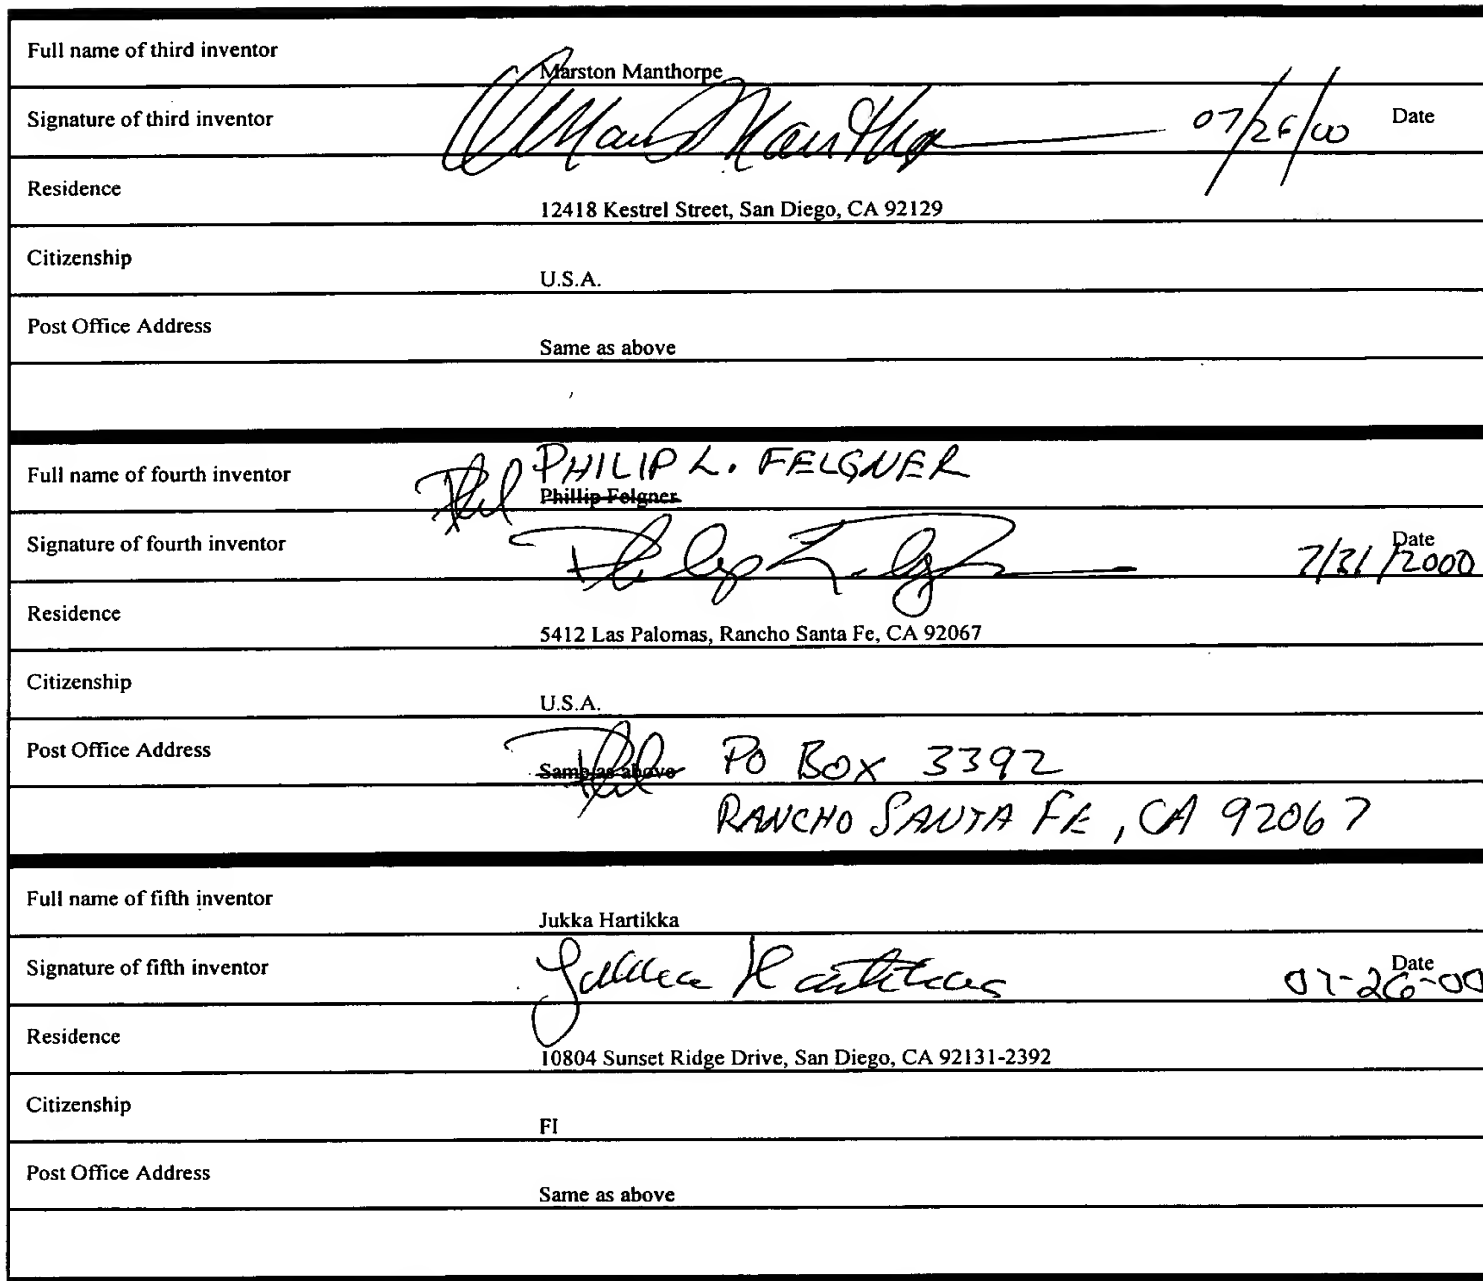 Full name of third inventor
Marston Manthorpe
Signature of third inventor
07/26/00 Date
Residence
12418 Kestrel Street, San Diego, CA 92129
Citizenship
U.S.A.
Post Office Address
Same as above
Full name of fourth inventor
Phil PHILIP L. FELGNER
Phillip Felgner
Signature of fourth inventor
Philip L. Felgner
Date
7/31/2000
Residence
5412 Las Palomas, Rancho Santa Fe, CA 92067
Citizenship
U.S.A.
Post Office Address
Same as above Phil PO BOX 3392
RANCHO SANTA FE, CA 92067
Full name of fifth inventor
Jukka Hartikka
Signature of fifth inventor
Jukka Hartikka
Date
07-26-00
Residence
10804 Sunset Ridge Drive, San Diego, CA 92131-2392
Citizenship
FI
Post Office Address
Same as above